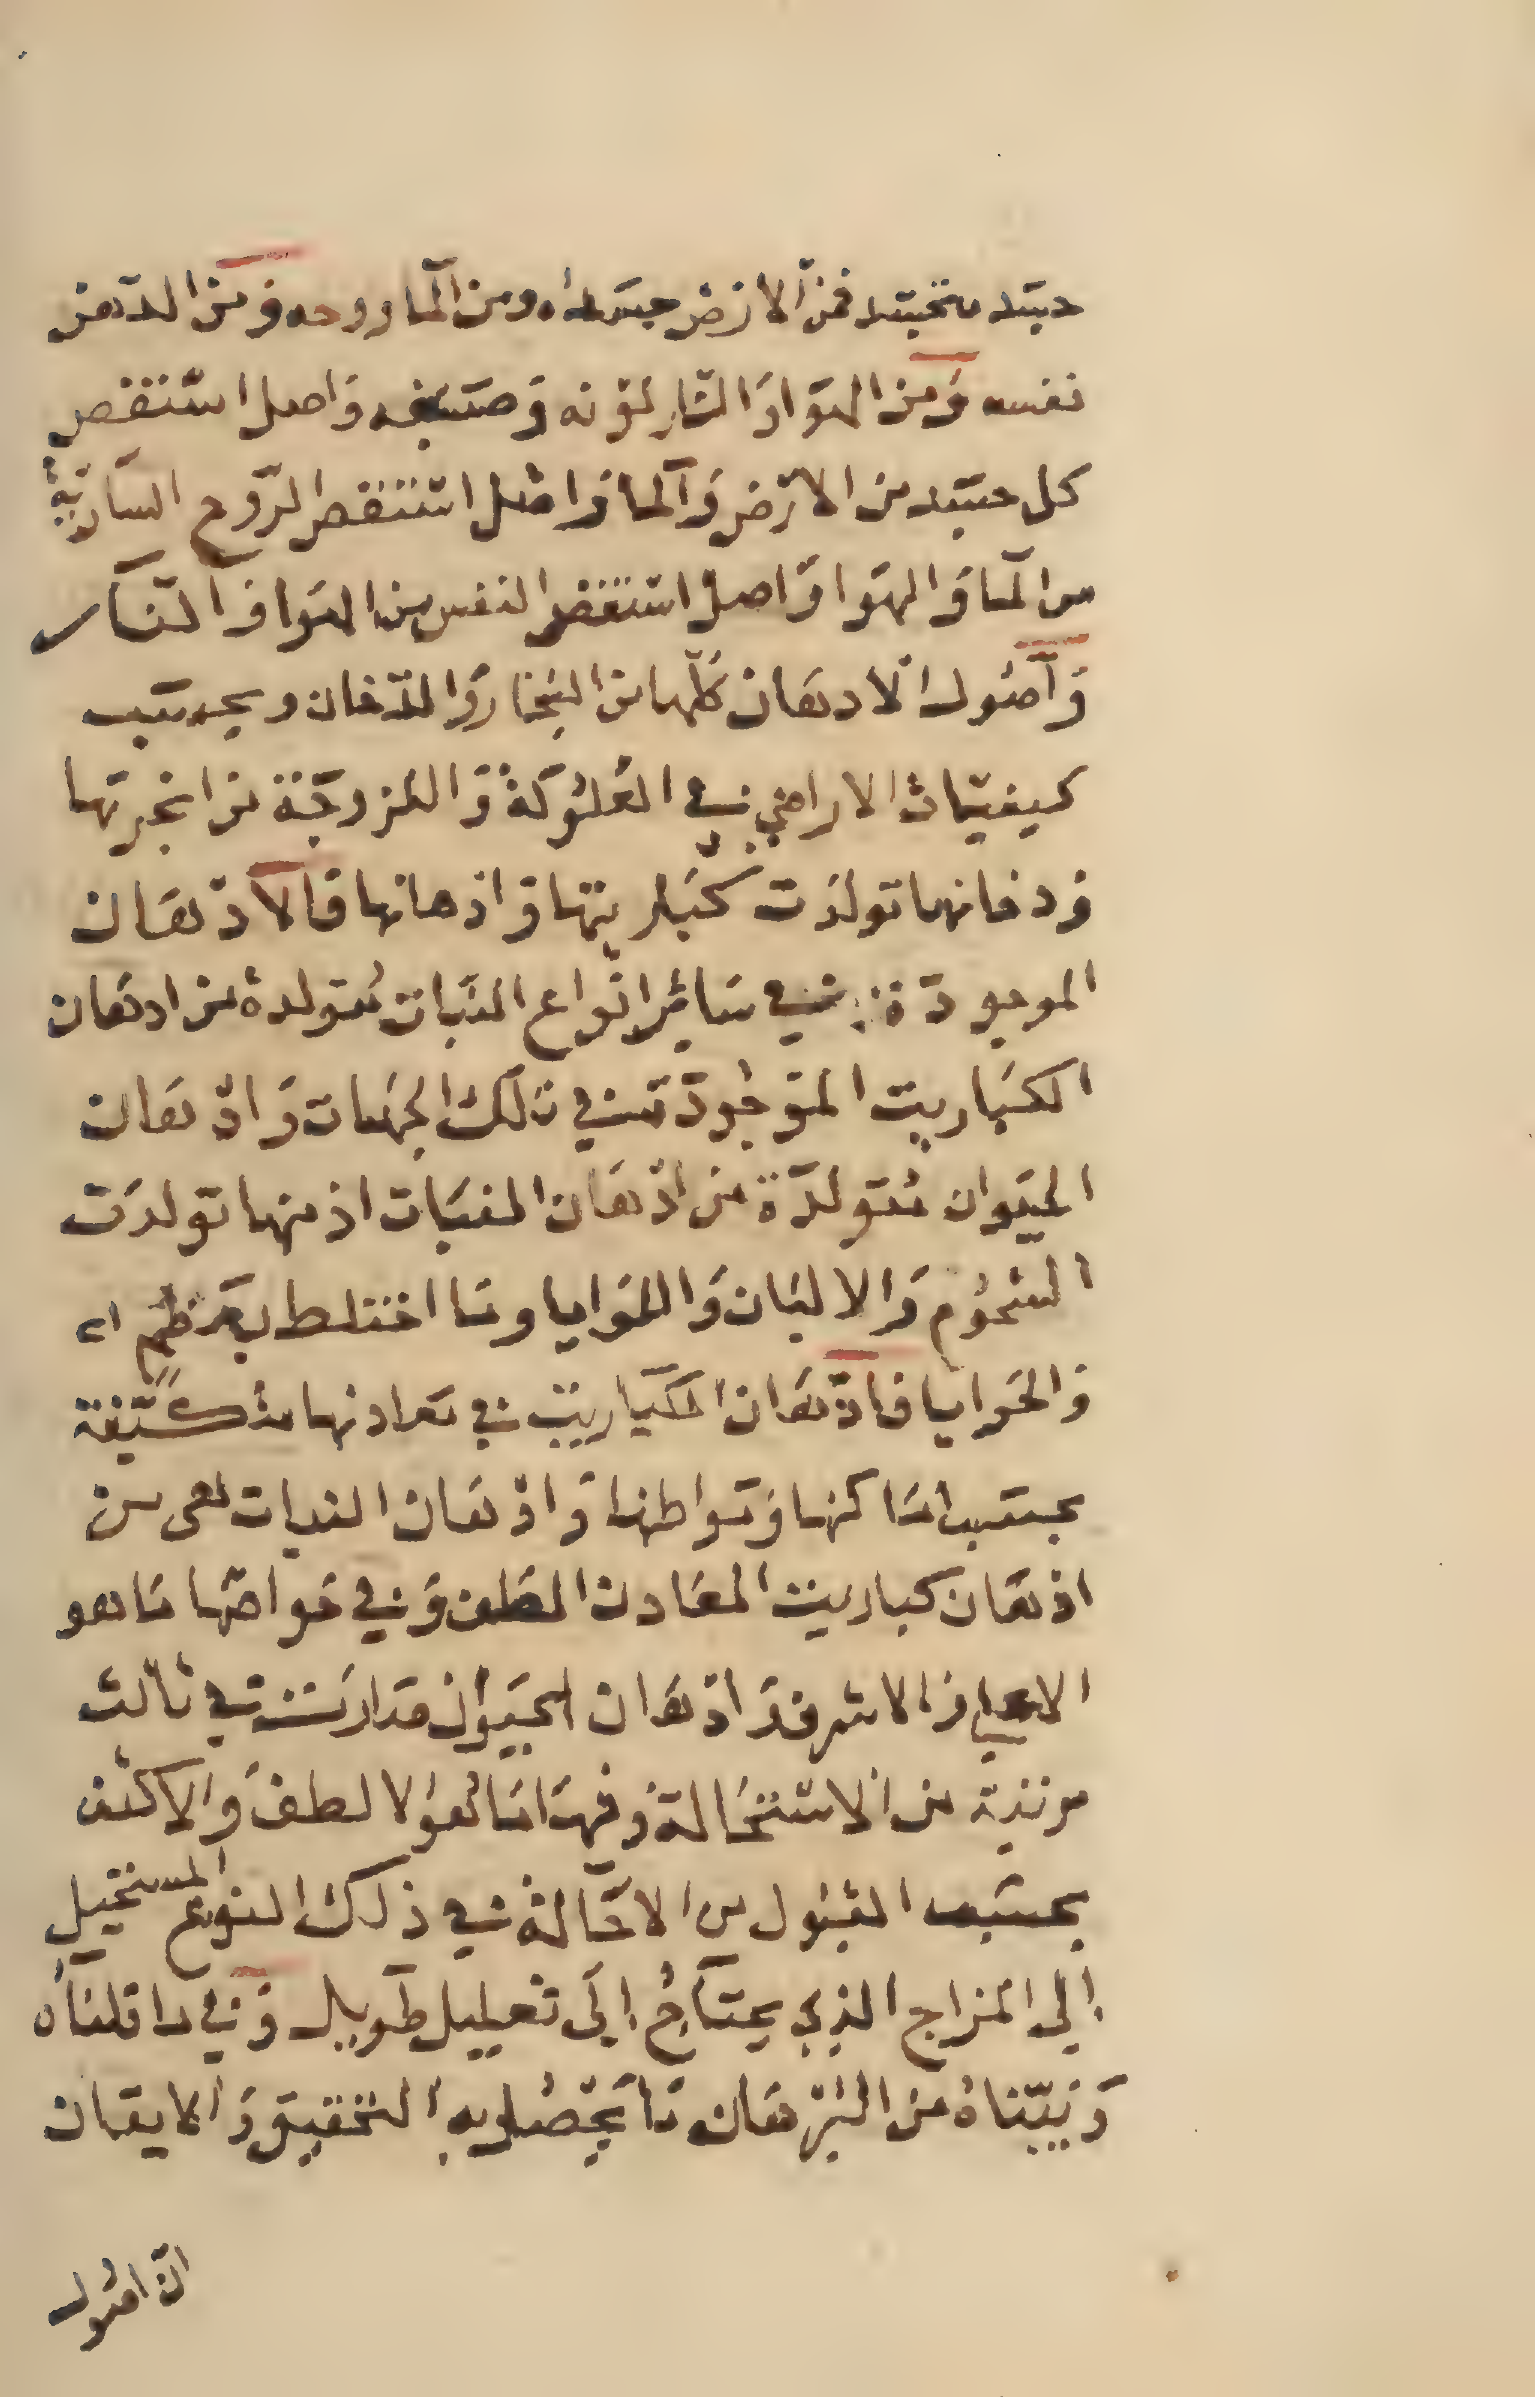 جسد متجسد فمن الارض جسده ومن الما روحه ومن الدهن
نفسه ومن الهوا والنار لونه وصبغه واصل استقص
كل جسد من الارض والما واصل استقص الروح السارية
من الما والهوا واصل استقص النفس من الهوا والنار
واصول الادهان كلها من البخار والدخان وبحسب
كيفيات الاراضي في العلوكة واللزوجة من ابخرتها
ودخانها تولدت كباريتها وادهانها فالادهان
الموجودة في سائر انواع النبات متولدة من ادهان
الكباريت الموجودة في تلك الجهات وادهان
الحيوان متولدة من ادهان النبات اذ منها تولدت
الشحوم والالبان واللوايا وما اختلط بعظم
والحوايا فادهان الكباريت في معادنها متكثفة
بحسب اماكنها ومواطنها وادهان النبات هي من
ادهان كباريت المعادن الطف وفي خواصها ما هو
الاعلى والاشرف وادهان الحيوان قد ارتقت في ثالث
مرتبة من الاستحالة وفيها ما هو الالطف والاكثف
بحسب القبول من الاحالة في ذلك النوع المستحيل
الى المزاج الذي يحتاج الى تعليل طويل وفي ما قلناه
وبيناه من البرهان ما يحصل به التحقيق والايقان
ان اصول